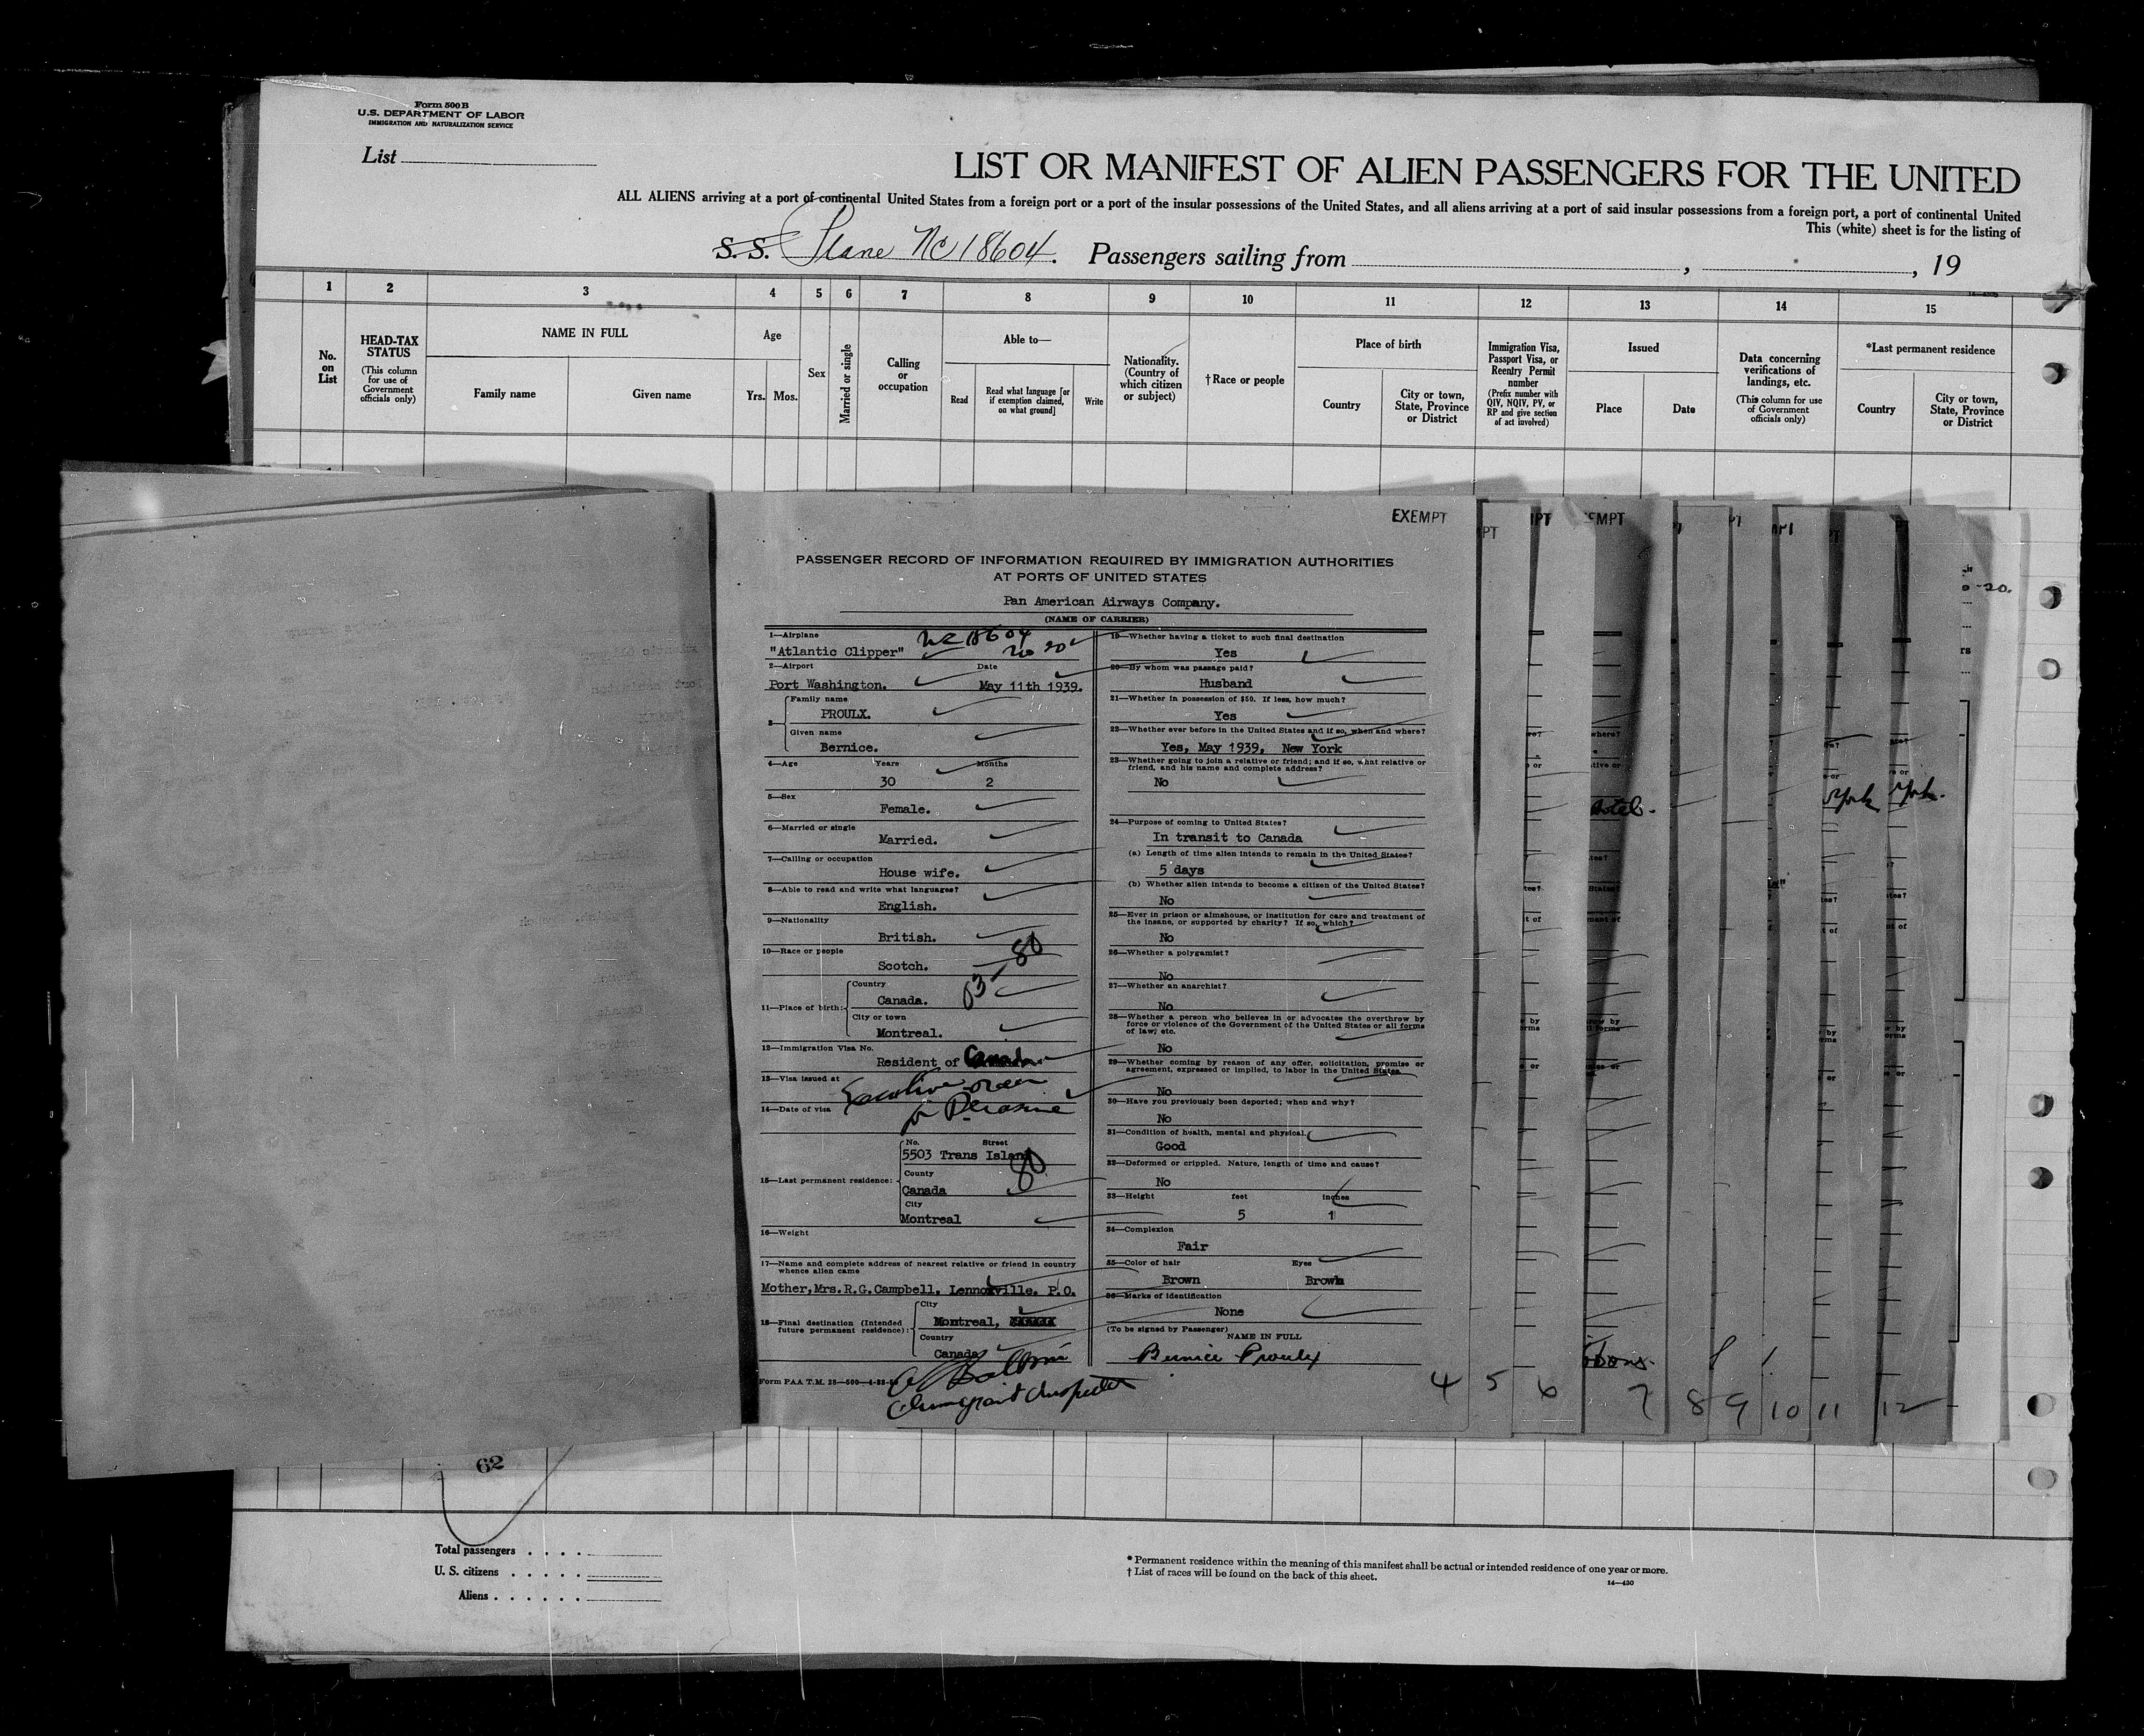 Form 500 B
U.S. DEPARTMENT OF LABOR
IMMIGRATION AND NATURALIZATION SERVICE
List
LIST OR MANIFEST OF ALIEN PASSENGERS FOR THE UNITED
ALL ALIENS arriving at a port of continental United States from a foreign port or a port of the insular possessions of the United States, and all aliens arriving at a port of said insular possessions from a foreign port, a port of continental United
This (white) sheet is for the listing of
S.S. Plane NC 18604. Passengers sailing from , , 19
1 2 3 4 5 6 7 8 9 10 11 12 13 14 15
No. on List
HEAD-TAX STATUS
(This column for use of Government officials only)
NAME IN FULL
Family name
Given name
Age
Yrs.
Mos.
Sex
Married or single
Calling or occupation
Able to—
Read
Read what language [or if exemption claimed, on what ground]
Write
Nationality. (Country of which citizen or subject)
†Race or people
Place of birth
Country
City or town, State, Province or District
Immigration Visa, Passport Visa, or Reentry Permit number
(Prefix number with QIV, NQIV, PV, or RP and give section of act involved)
Issued
Place
Date
Data concerning verifications of landings, etc.
(This column for use of Government officials only)
*Last permanent residence
Country
City or town, State, Province or District
EXEMPT
PASSENGER RECORD OF INFORMATION REQUIRED BY IMMIGRATION AUTHORITIES
AT PORTS OF UNITED STATES
Pan American Airways Company.
(NAME OF CARRIER)
1—Airplane
NC 18604
"Atlantic Clipper"
2—Airport Date
Port Washington. May 11th 1939.
3—
Family name
PROULX.
Given name
Bernice.
4—Age Years Months
30 2
5—Sex
Female.
6—Married or single
Married.
7—Calling or occupation
House wife.
8—Able to read and write what languages?
English.
9—Nationality
British.
10—Race or people
Scotch.
80
11—Place of birth:
Country
Canada.
City or town
Montreal.
12—Immigration Visa No.
Resident of Canada
13—Visa issued at
Executive order
14—Date of visa
No. Street
5503 Trans Island
80
15—Last permanent residence:
County
Canada
City
Montreal
16—Weight
17—Name and complete address of nearest relative or friend in country
whence alien came
Mother, Mrs. R.G. Campbell. Lennoxville. P.O.
18—Final destination (Intended future permanent residence):
City
Montreal,
Country
Canada
Form PAA T.M.
19—Whether having a ticket to such final destination
Yes
20—By whom was passage paid?
Husband
21—Whether in possession of $50. If less, how much?
Yes
22—Whether ever before in the United States and if so, when and where?
Yes, May 1939, New York
23—Whether going to join a relative or friend; and if so, what relative or
friend, and his name and complete address?
No
24—Purpose of coming to United States?
In transit to Canada
(a) Length of time alien intends to remain in the United States?
5 days
(b) Whether alien intends to become a citizen of the United States?
No
25—Ever in prison or almshouse, or institution for care and treatment of
the insane, or supported by charity? If so, which?
No
26—Whether a polygamist?
No
27—Whether an anarchist?
No
28—Whether a person who believes in or advocates the overthrow by
force or violence of the Government of the United States or all forms
of law, etc.
No
29—Whether coming by reason of any offer, solicitation, promise or
agreement, expressed or implied, to labor in the United States
No
30—Have you previously been deported; when and why?
No
31—Condition of health, mental and physical.
Good
32—Deformed or crippled. Nature, length of time and cause?
No
33—Height feet inches
5 1
34—Complexion
Fair
35—Color of hair Eyes
Brown Brown
36—Marks of identification
None
(To be signed by Passenger)
NAME IN FULL
Bernice Proulx
4 5 6 7 8 9 10 11 12
62
Total passengers . . . .
U. S. citizens . . . . .
Aliens . . . . . .
* Permanent residence within the meaning of this manifest shall be actual or intended residence of one year or more.
† List of races will be found on the back of this sheet.
14—430